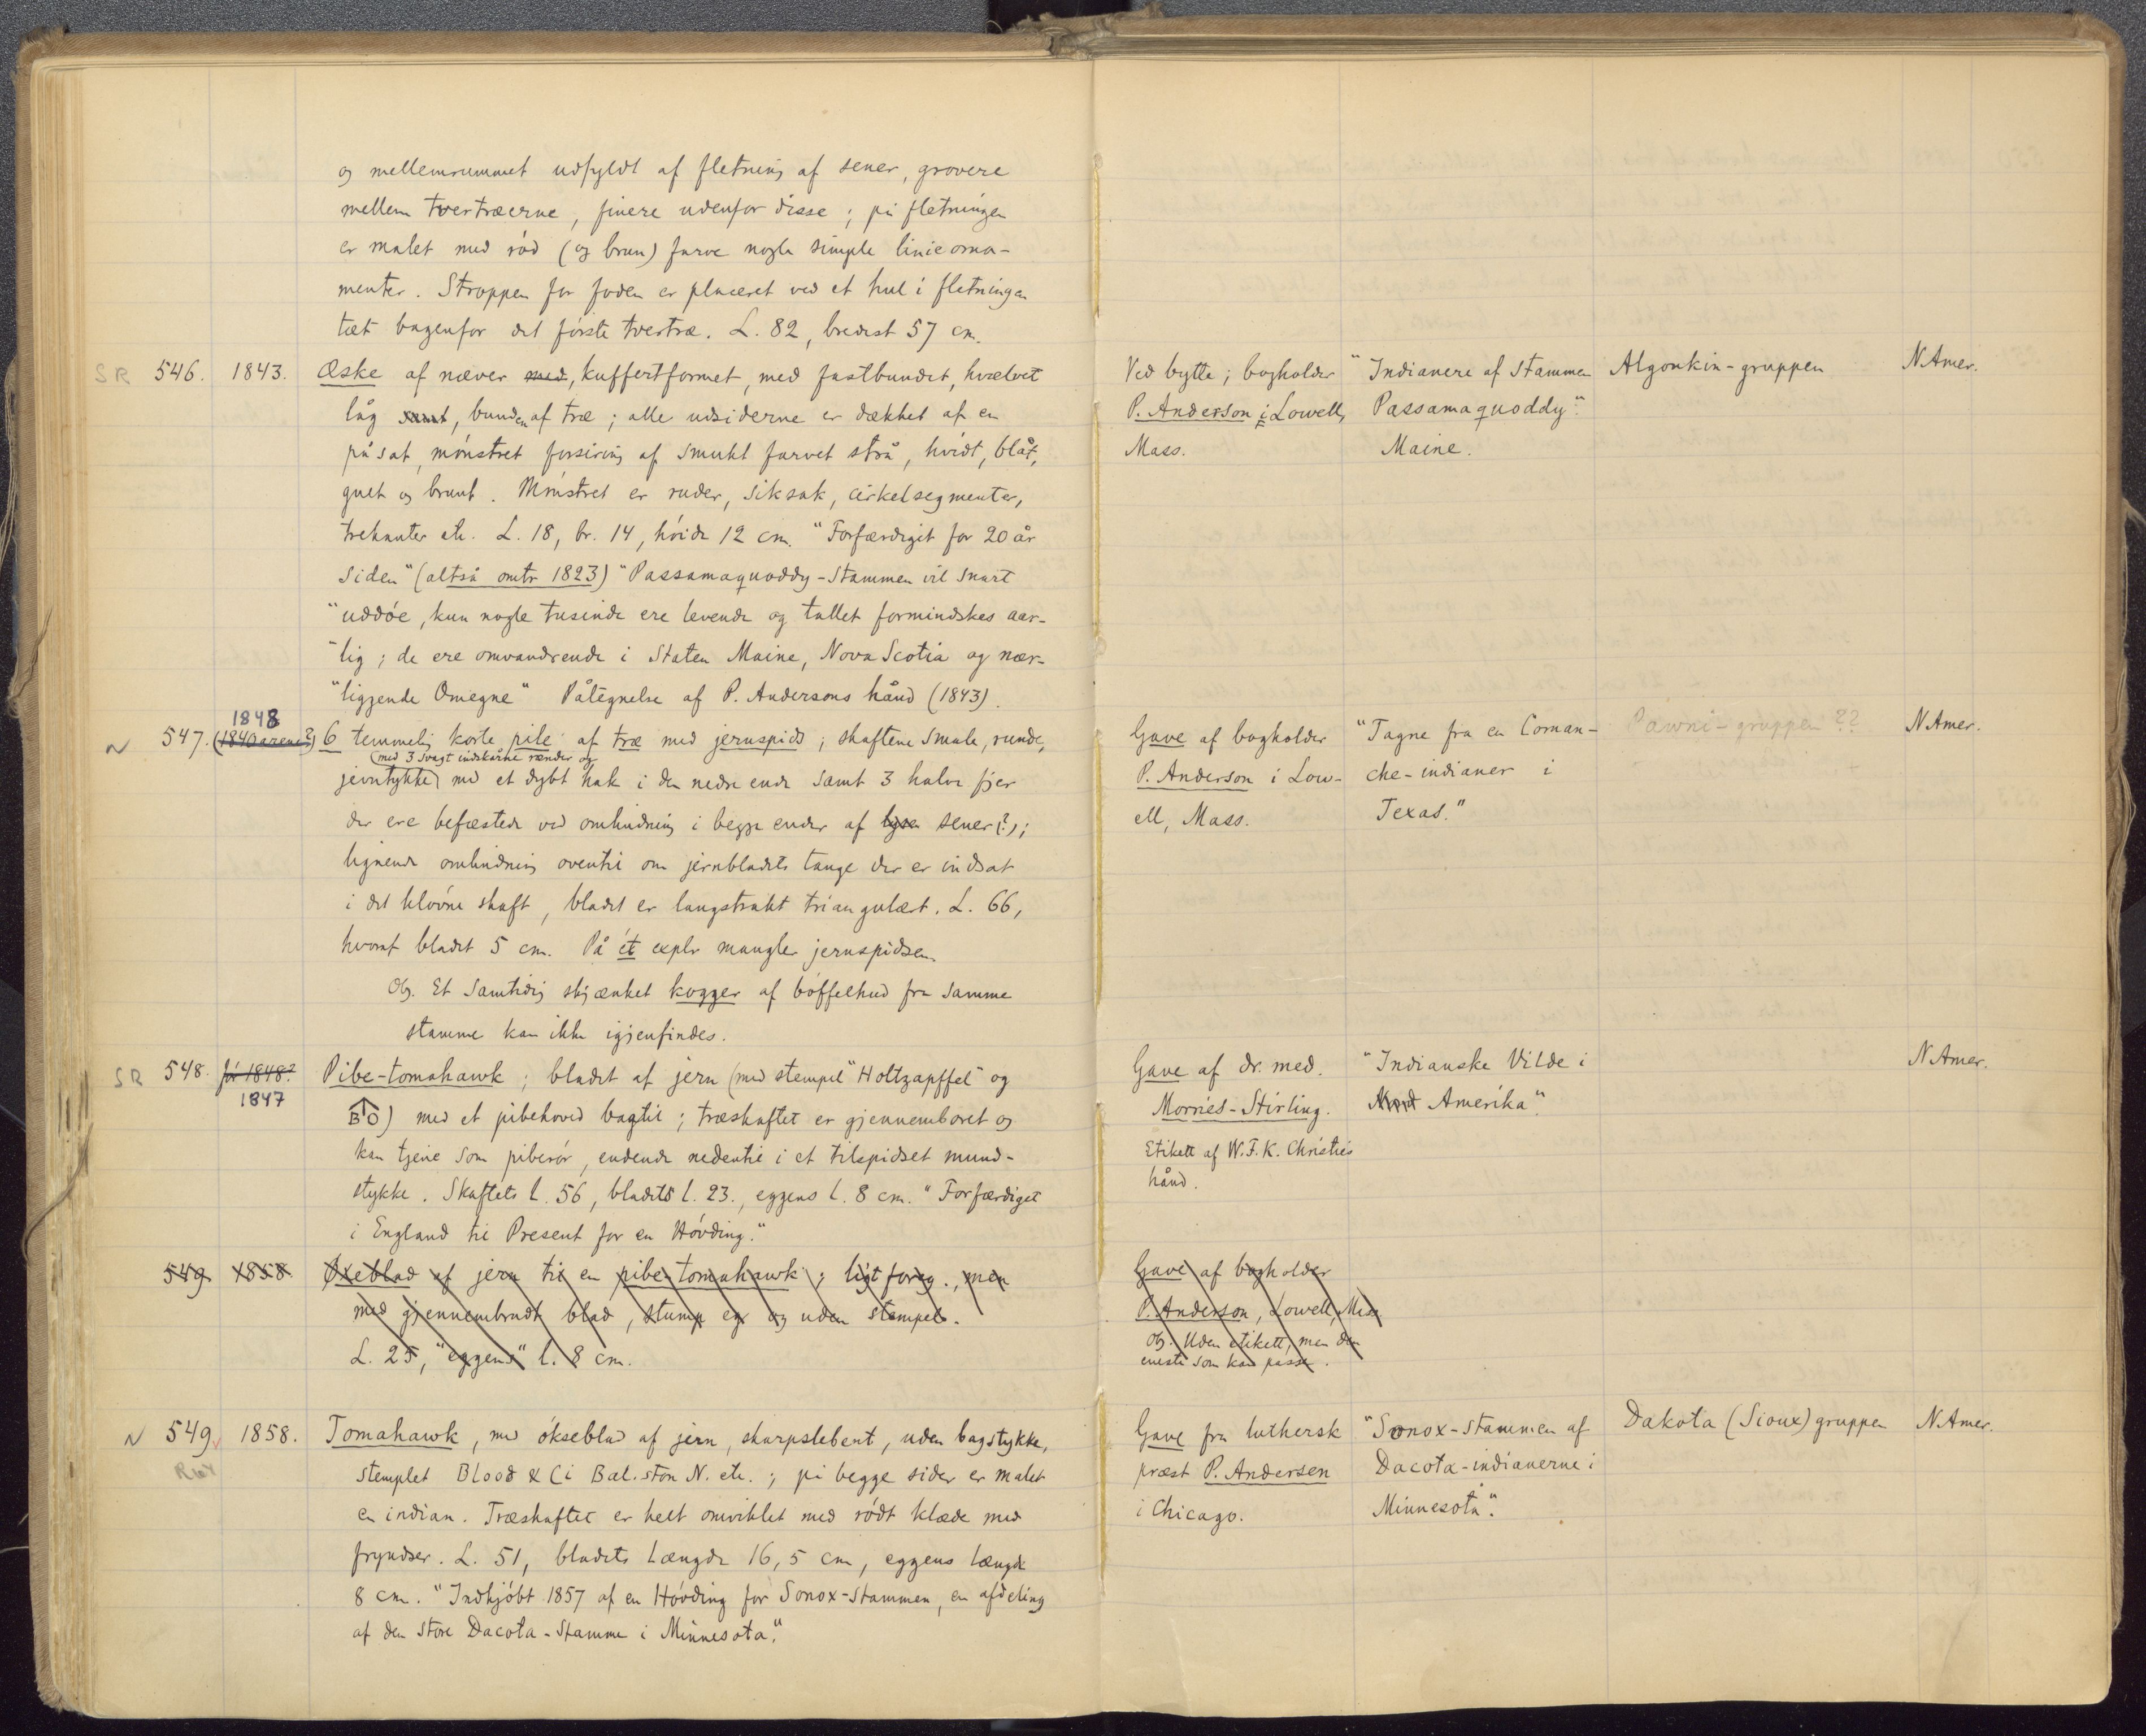 og mellemrummet udfyldt af fletning af sener, grovere
mellem tvertræerne, finere udenfor disse; på fletningen
er malet med rød (og brun) farve nogle simple linieorna-
menter. Stroppen for foden er placeret ved et hul i fletningen
tæt bagenfor det første tvertræ. L. 82, bredest 57 cm.
SR 546. 1843. Æske af næver med, kuffertformet, med fastbundet, hvælvet
låg samt, bunden af træ; alle udsiderne er dækket af en
påsat, mønstret forsiring af smukt farvet strå, hvidt, blåt,
gult og brunt. Mønstret er ruder, siksak, cirkelsegmenter,
trekanter etc. L. 18, br. 14, høide 12 cm. "Forfærdiget for 20 år
siden" (altså omtr 1823) "Passamaquoddy-Stammen vil snart
"uddøe, kun nogle tusinde ere levende og tallet formindskes aar-
"lig; de ere omvandrende i Staten Maine, Nova Scotia og nær-
"liggende Omegne" Påtegnelse af P. Andersons hånd (1843).
Ved bytte; bogholder
P. Anderson i Lowell,
Mass.
"Indianere af Stammen
Passamaquoddy".
Maine.
Algonkin-gruppen
N.Amer.
1848
N 547. (1840 arene?) 6 temmelig korte pile af træ med jernspids; skaftene smale, runde,
(med 3 svagt indskårne rænder og
jevntykke) med et dybt hak i den nedre ende samt 3 halve fjer
der ere befæstede ved ombindning i begge ender af lyse sener (?);
lignende ombindning oventil om jernbladets tange der er indsat
i det kløvne skaft, bladet er langstrakt triangulært. L. 66,
hvoraf bladet 5 cm. På ét explr mangler jernspidsen.
Obs. Et samtidig skjænket kogger af bøffelhud fra samme
stamme kan ikke igjenfindes.
Gave af bogholder
P. Anderson i Low-
ell, Mass.
"Tagne fra en Coman-
che-indianer i
Texas."
Pawni-gruppen ??
N.Amer.
SR 548. før 1848? Pibe-tomahawk; bladet af jern (med stempel "Holtzapffel" og
1847
BO) med et pibehoved bagtil; træskaftet er gjennemboret og
kan tjene som piberør, endende nedentil i et tilspidset mund-
stykke. Skaftets l. 56, bladets l. 23., eggens l. 8 cm. "Forfærdiget
i England til Present for en Høvding."
Gave af dr. med.
Morries-Stirling.
Etikett af W.F.K. Christies
hånd.
"Indianske Vilde i
Nord Amerika".
N.Amer.
549. 1858. Øxeblad af jern til en pibe-tomahawk; ligt foreg., men
med gjennembrudt blad, stump eg og uden stempel.
L. 25, "eggens" l. 8 cm.
Gave af bogholder
P. Anderson, Lowell, Mass
Obs. Uden etikett, men den
eneste som kan passe.
N 549. 1858. Tomahawk, med økseblad af jern, skarpslebent, uden bagstykke,
stemplet Blood & Ci Bal.ston N. etc.; på begge sider er malet
en indian. Træskaftet er helt omviklet med rødt klæde med
fryndser. L. 51, bladets længde 16,5 cm, eggens længde
8 cm. "Indkjøbt 1857 af en Høvding for Sonox-Stammen, en afdeling
af den store Dacota-Stamme i Minnesota".
Gave fra luthersk
præst P. Andersen
i Chicago.
"Sonox-stammen af
Dacota-indianerne i
Minnesota".
Dakota (Sioux) gruppen
N.Amer.